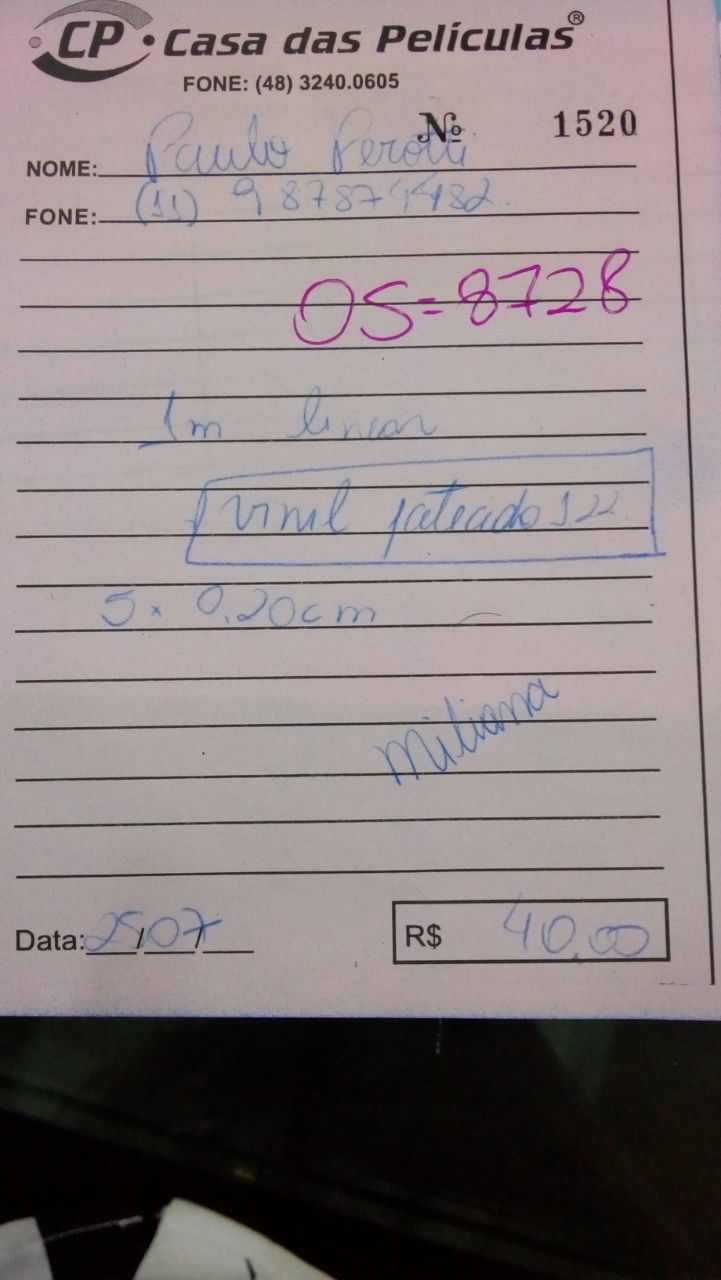 CP • Casa das Películas®
FONE: (48) 3240.0605
Nº 1520
NOME: Paulo Perotti
FONE: (11) 9 8787
OS=8728
1m linear
vinil jateado 122
5x 0,20cm
Miliana
Data: 25/07/
R$ 40,00